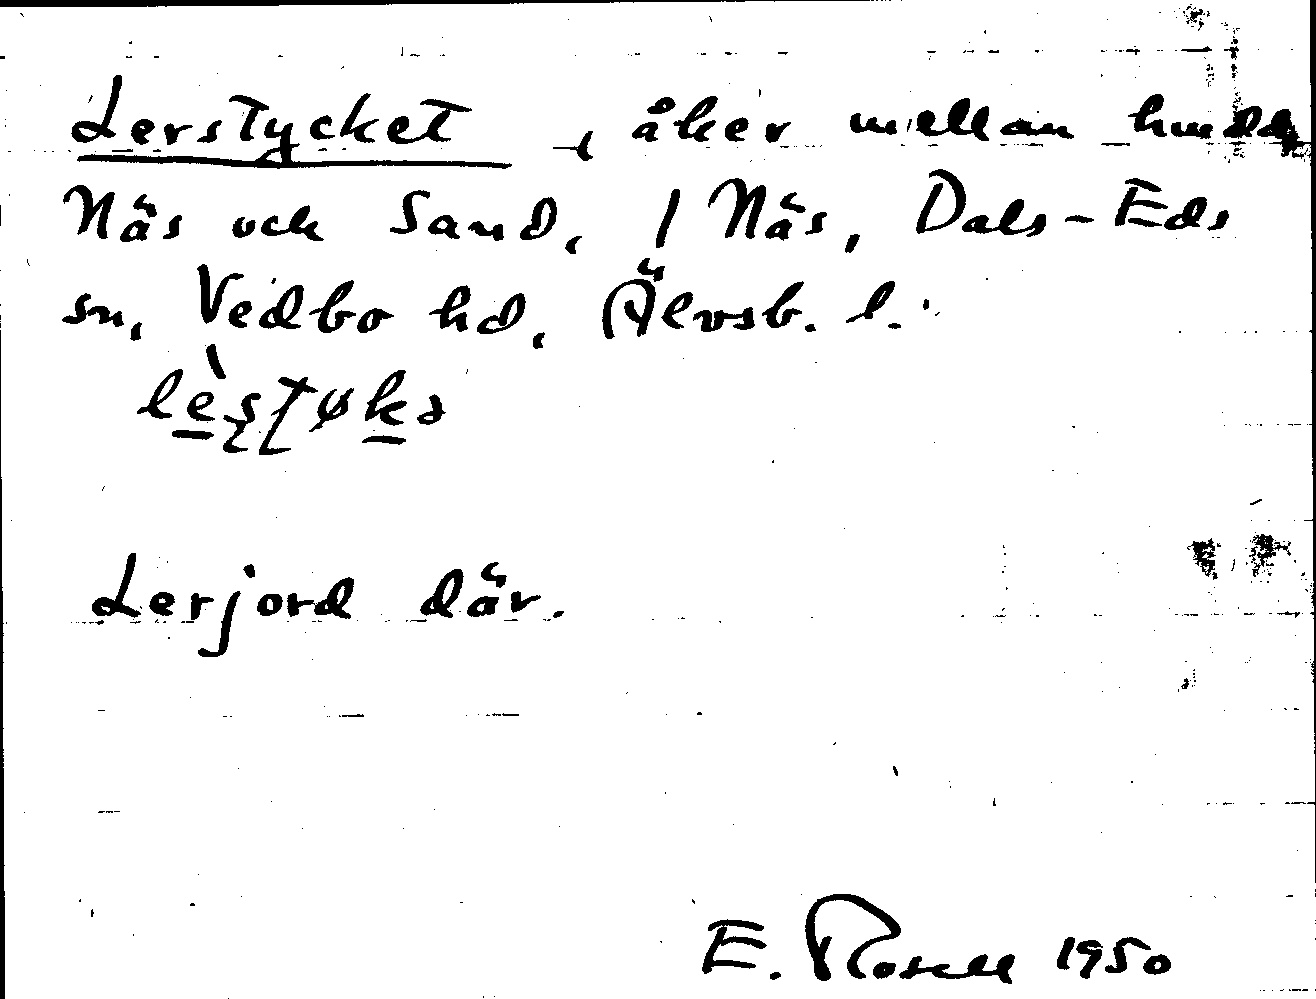 Lerstycket, åker mellan hmdd
Näs och Sand, / Näs, Dals-Eds
sn, Vedbo hd, Älvsb. l.
Lerjord där.
E. Rosell 1950